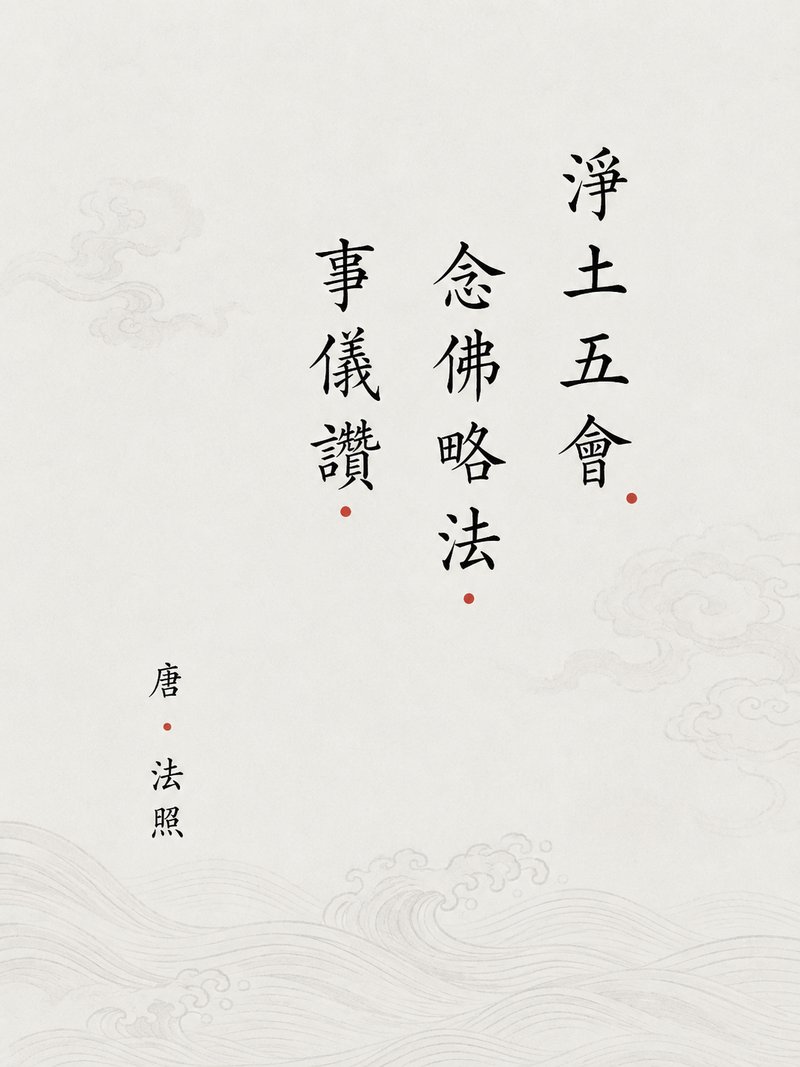 淨土五會
念佛略法
事儀讚
唐•法照